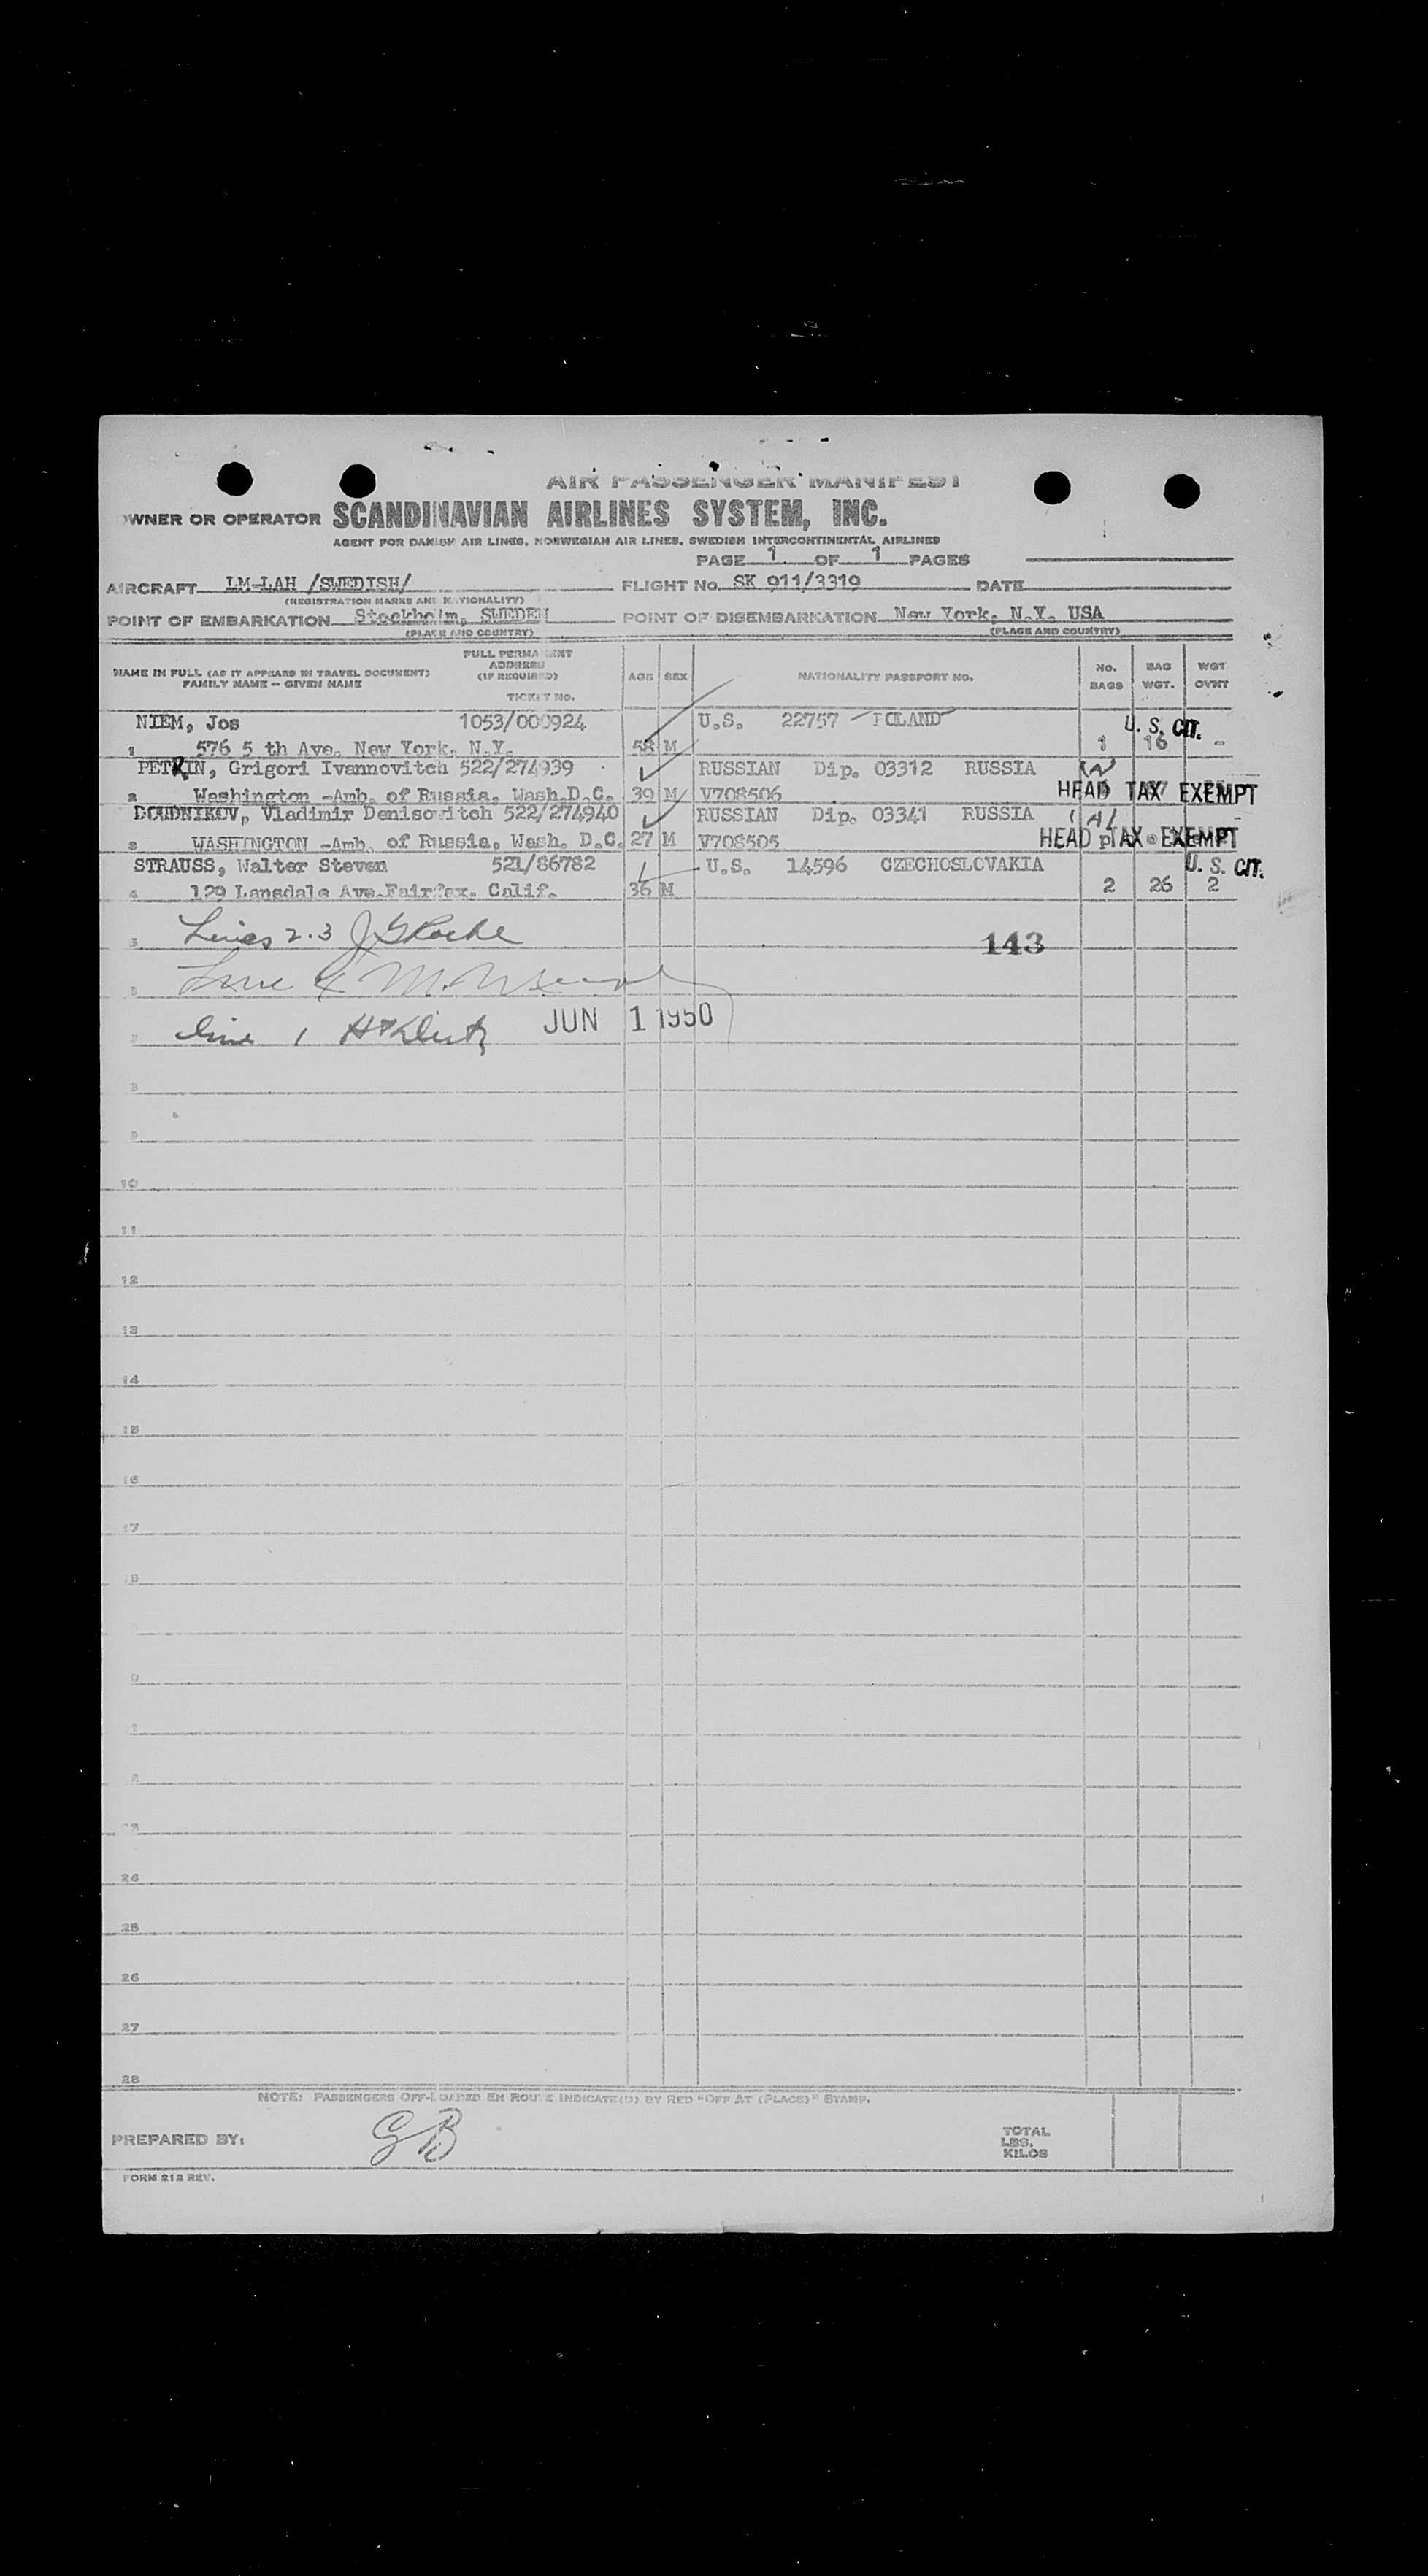 AIR PASSENGER MANIFEST
OWNER OR OPERATOR SCANDINAVIAN AIRLINES SYSTEM, INC.
AGENT FOR DANISH AIR LINES, NORWEGIAN AIR LINES, SWEDISH INTERCONTINENTAL AIRLINES
PAGE 1 OF 1 PAGES
AIRCRAFT LM-LAH /SWEDISH/ FLIGHT No. SK 911/3319 DATE
(REGISTRATION MARKS AND NATIONALITY)
POINT OF EMBARKATION Stockholm, SWEDEN POINT OF DISEMBARKATION New York, N.Y. USA
(PLACE AND COUNTRY) (PLACE AND COUNTRY)
NAME IN FULL (AS IT APPEARS IN TRAVEL DOCUMENT) FAMILY NAME - GIVEN NAME FULL PERMANENT ADDRESS (IF REQUIRED) TICKET No. AGE SEX NATIONALITY PASSPORT NO. No. BAGS BAG WGT. WGT OVNT
NIEM, Jos 1053/000924 U.S. 22757 POLAND U. S. CIT.
1 576 5 th Ave. New York, N.Y. 58 M 1 16 -
PETKIN, Grigori Ivannovitch 522/274939 RUSSIAN Dip. 03312 RUSSIA
2 Washington -Amb. of Russia, Wash.D.C. 39 M V708506 HEAD TAX EXEMPT
DOUDNIKOV, Vladimir Denisovitch 522/274940 RUSSIAN Dip. 03341 RUSSIA
3 WASHINGTON -Amb. of Russia, Wash. D.C. 27 M V708505 HEAD TAX EXEMPT
STRAUSS, Walter Steven 521/86782 U.S. 14596 CZECHOSLOVAKIA U. S. CIT.
4 129 Lansdale Ave.Fairfax. Calif. 36 M 2 26 2
5 Lines 2.3 143
6 Line 4
7 line 1 JUN 1 1950
8
9
10
11
12
13
14
15
16
17
18
24
25
26
27
28
NOTE: PASSENGERS OFF-LOADED EN ROUTE INDICATE(D) BY RED "OFF AT (PLACE)" STAMP.
PREPARED BY: GB TOTAL LBS. KILOS
FORM 212 REV.